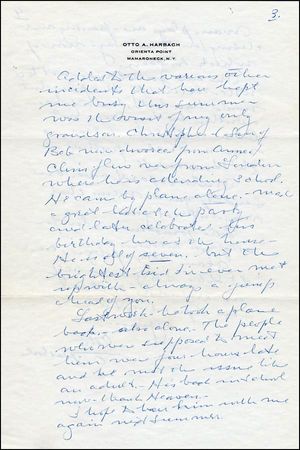 3.
OTTO A. HARBACH
ORIENTA POINT
MAMARONECK, N.Y.
Added to the various other
incidents that have kept
me busy this summer
was the visit of my only
grandson. Christopher (son of
Bob now divorced from Anne)
Chris flew over from London
where he is attending school.
He came by plane alone - made
a great hit at the party
and later celebrated his
birthday here at the house -
He is all of seven. but the
brightest kid I've ever met
up with - always a jump
ahead of you.
Last week he took a plane
back - also alone. The people
who were supposed to meet
him were four hours late
and he met the issue like
an adult. His back in school
now - thank Heaven.
I hope to have him with me
again next summer.